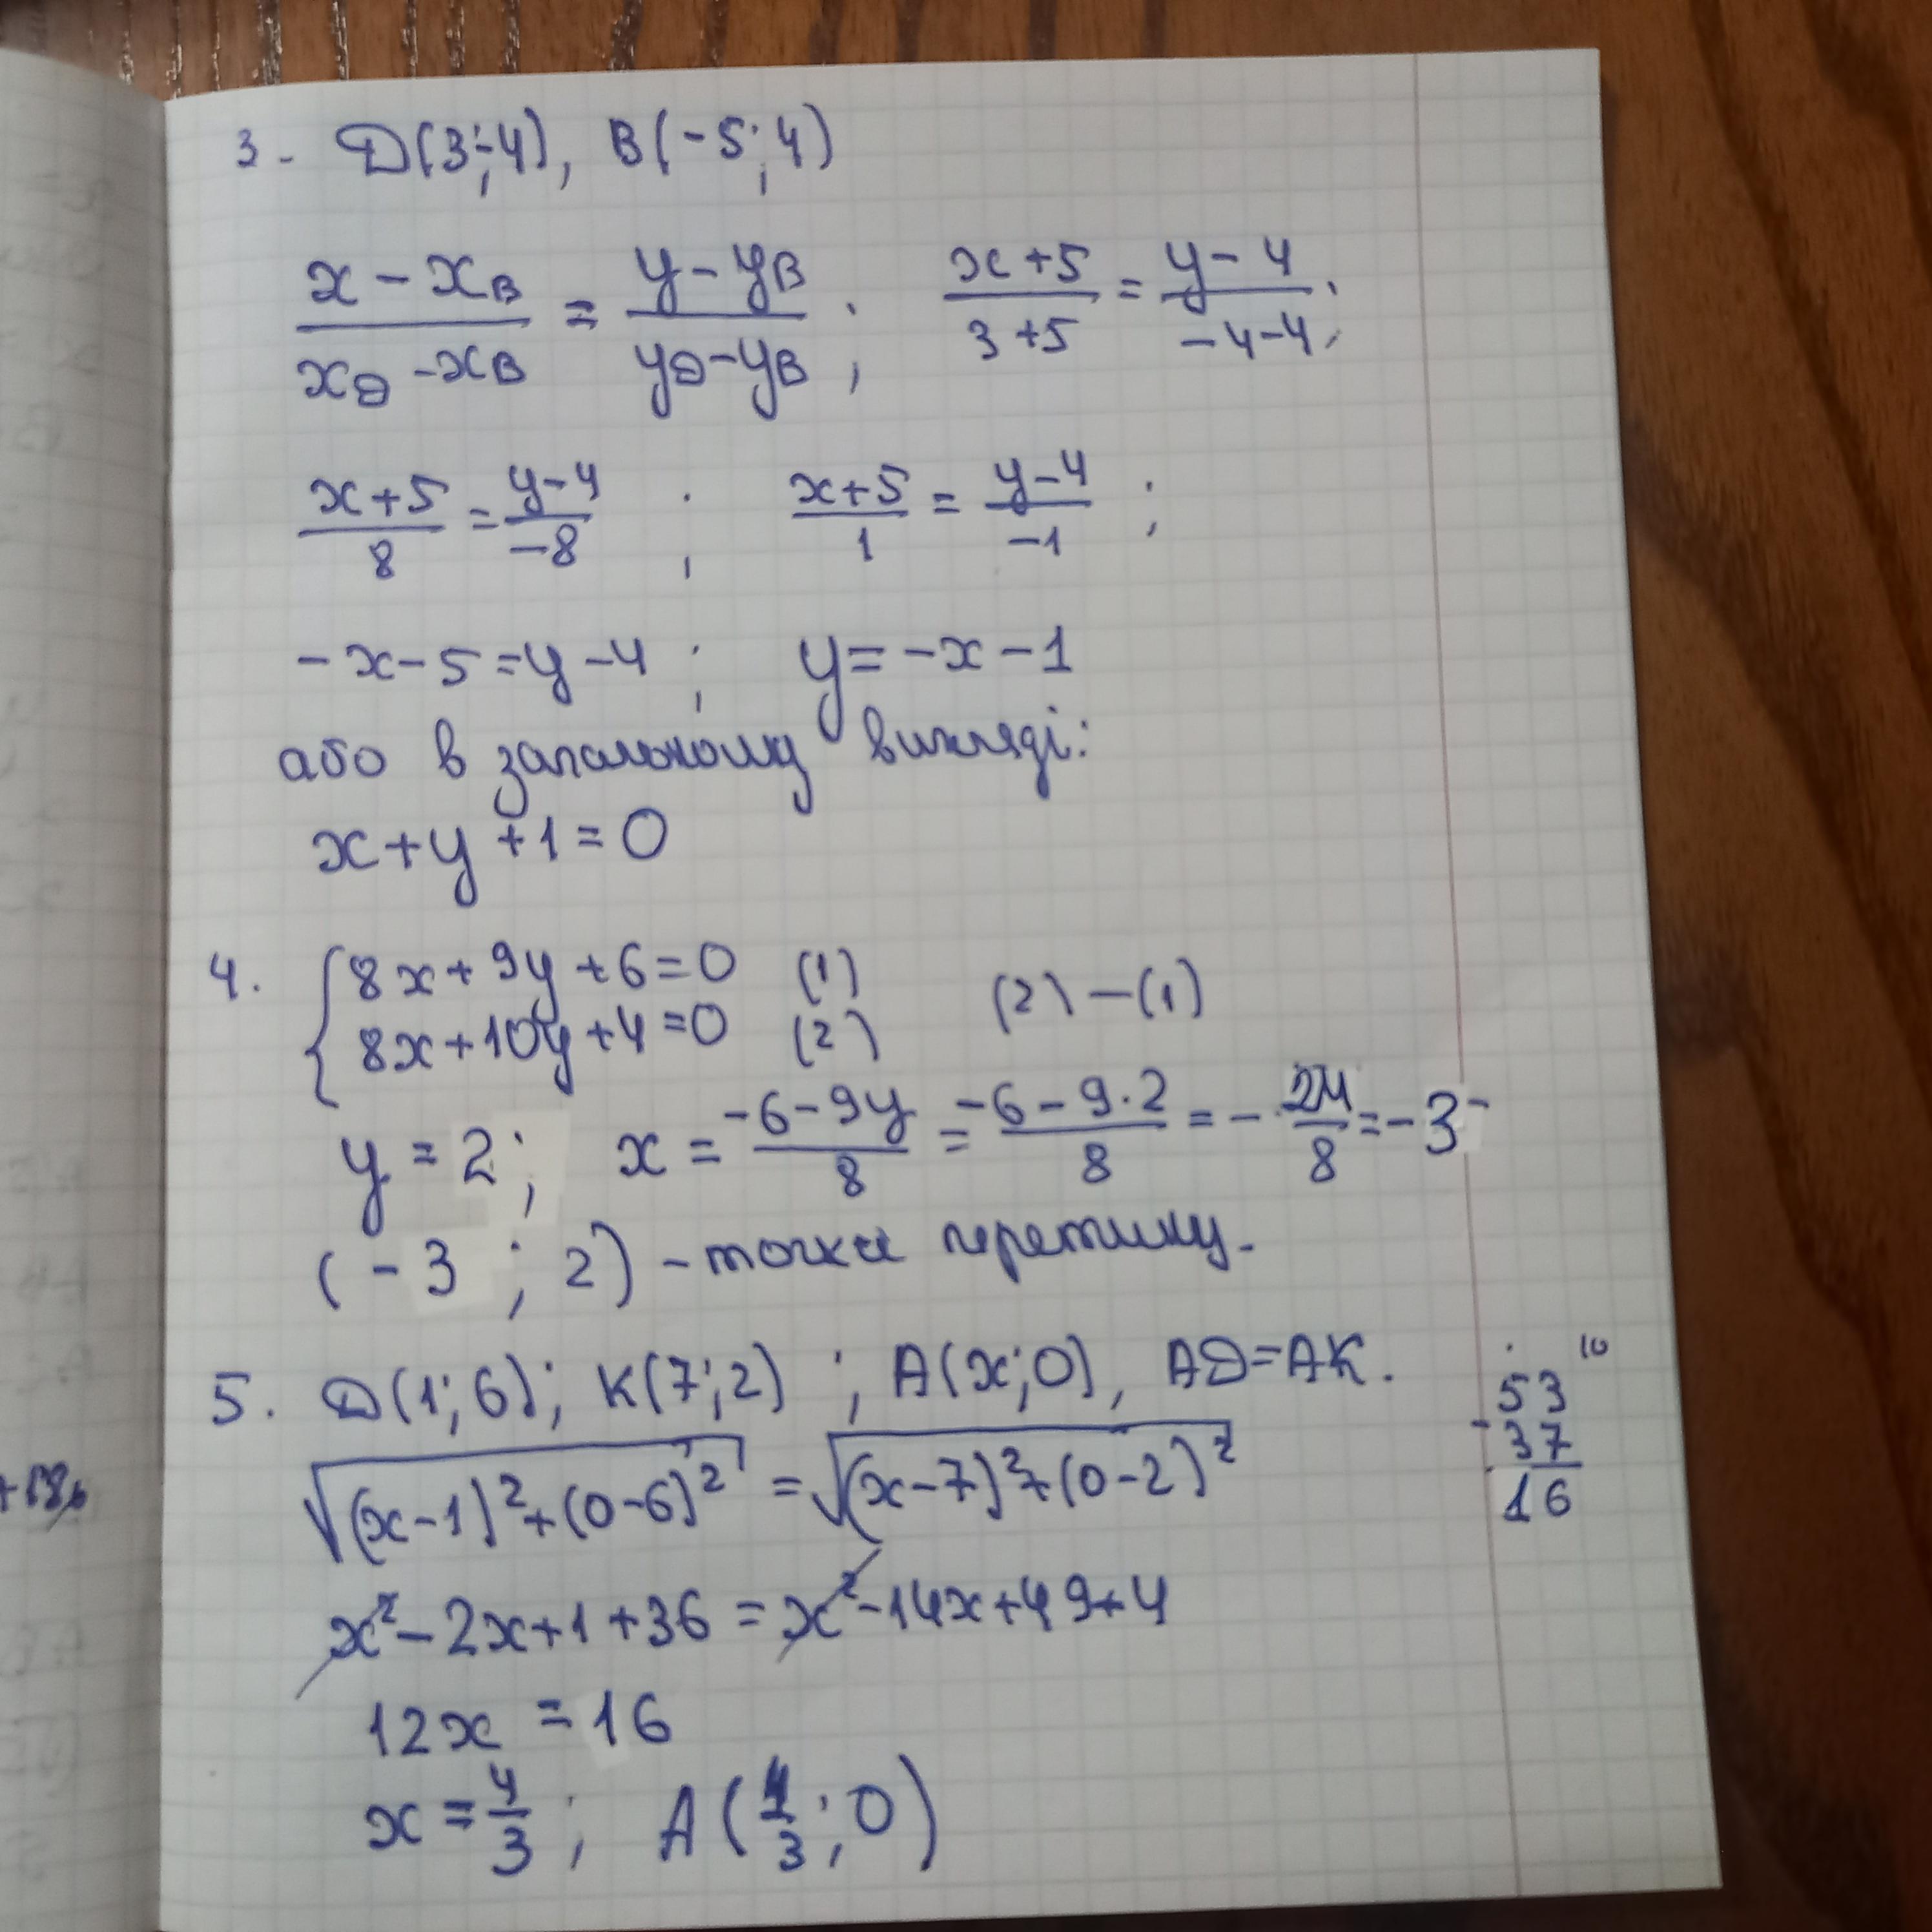 3. D(3;-4), B(-5;4)
(x - x_B)/(x_D - x_B) = (y - y_B)/(y_D - y_B); (x+5)/(3+5) = (y-4)/(-4-4);
(x+5)/8 = (y-4)/(-8); (x+5)/1 = (y-4)/(-1);
-x-5=y-4; y=-x-1
або в загальному вигляді:
x+y+1=0
4. { 8x+9y+6=0 (1)
8x+10y+4=0 (2) (2)-(1)
y=2; x = (-6-9y)/8 = (-6-9·2)/8 = -24/8 = -3
(-3; 2) - точка перетину.
5. D(1;6); K(7;2); A(x;0), AD=AK.
√((x-1)²+(0-6)²) = √((x-7)²+(0-2)²)
x²-2x+1+36 = x²-14x+49+4
12x = 16
x = 4/3; A(4/3; 0)
10
53
- 37
16